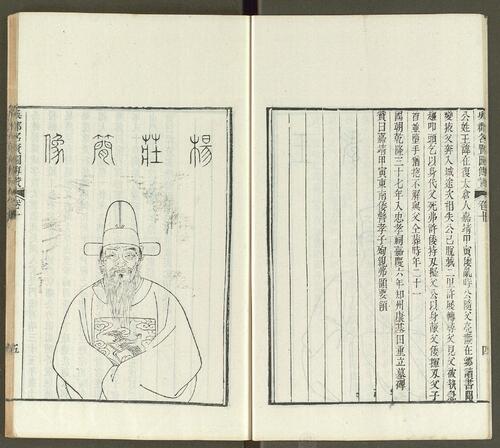 吳郡名賢圖傳贊 卷十
四
公姓王諱在復太倉人嘉靖甲寅倭亂時公隨父在鄉讀書聞
變掖父奔入城途父相失公已脫城二里許展轉尋父見父被執急
趨叩頭乞以身代父死弗許倭持刃擬父公以身蔽父倭揮刃父子
首並墮手猶抱不解與父仝葬時年二十一
國朝乾隆三十七年入忠孝祠嘉慶六年知州康基田重立墓碑
贊曰嘉靖甲寅東南倭警孝子殉親弗顧要領
楊莊簡像
吳郡名賢圖傳贊 卷十
五